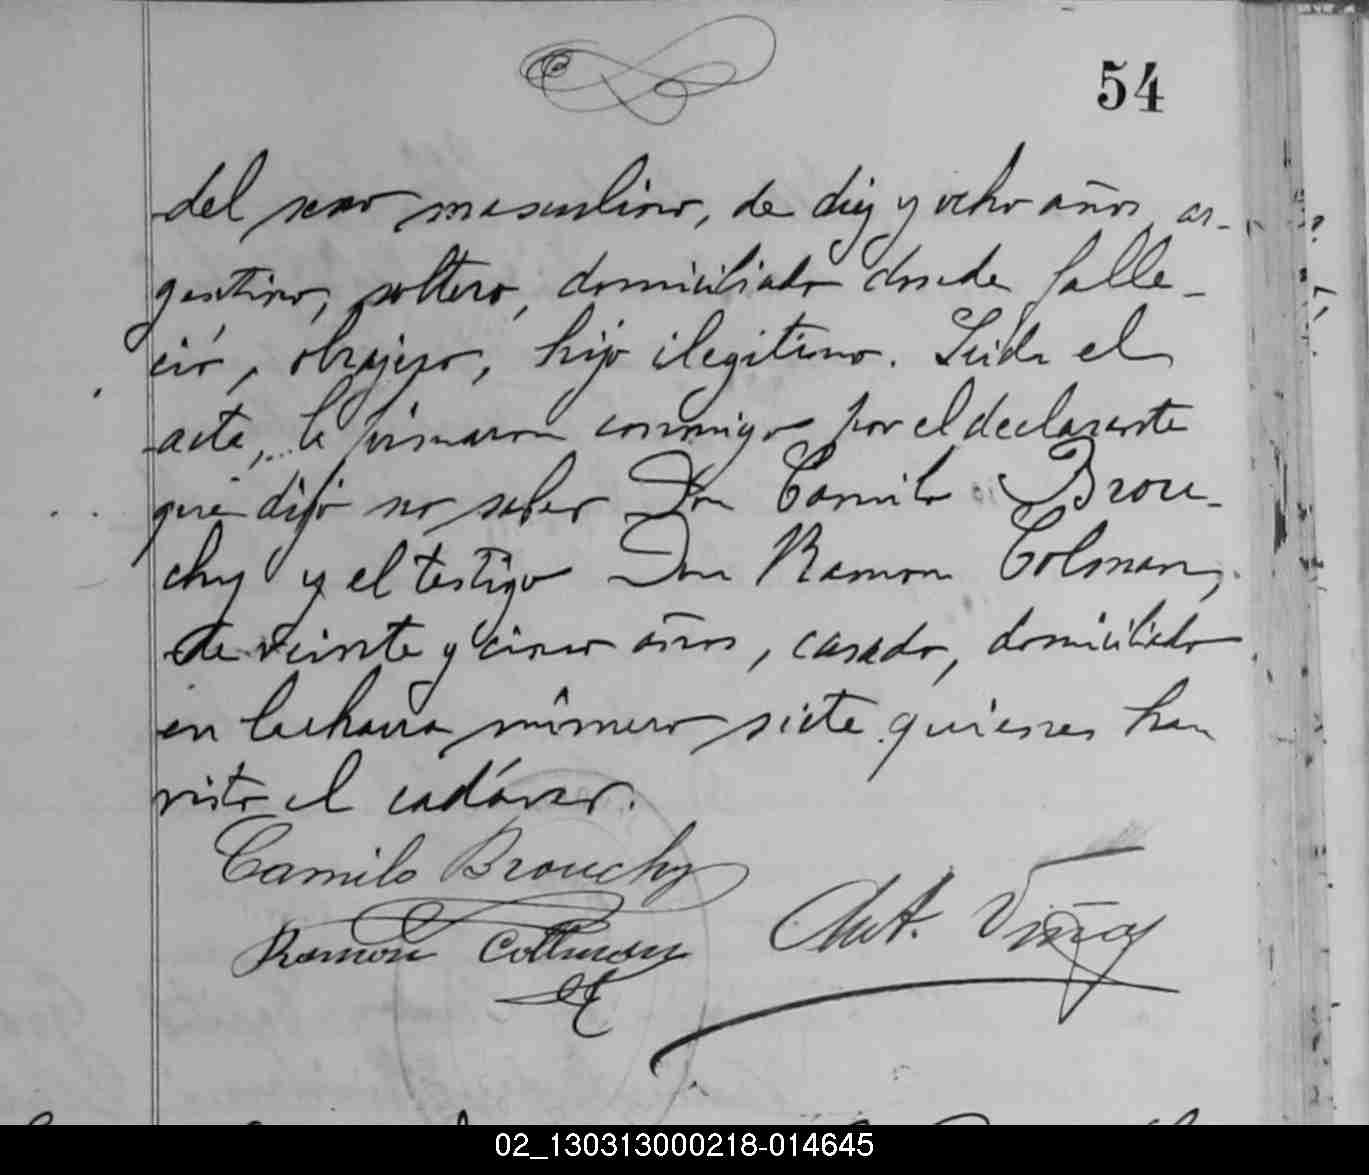 54
del sexo masculino, de diez y ocho años, ar-
gentino, soltero, domiciliado donde falle-
ció, obrajero, hijo ilegitimo. Leida el
acta, la firmaron conmigo por el declarante
que dijo no saber Don Camilo Brou-
chy y el testigo Don Ramon Colman,
de veinte y cinco años, casado, domiciliado
en lachacra número siete quienes han
visto el cadáver.
Camilo Brouchy
Ramon Collman
Ant. Viñas
02_130313000218-014645